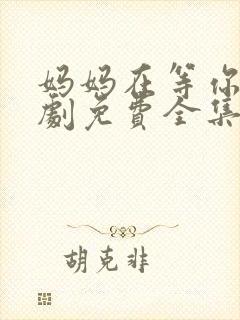 妈妈在等你
劇免費全集
胡克非